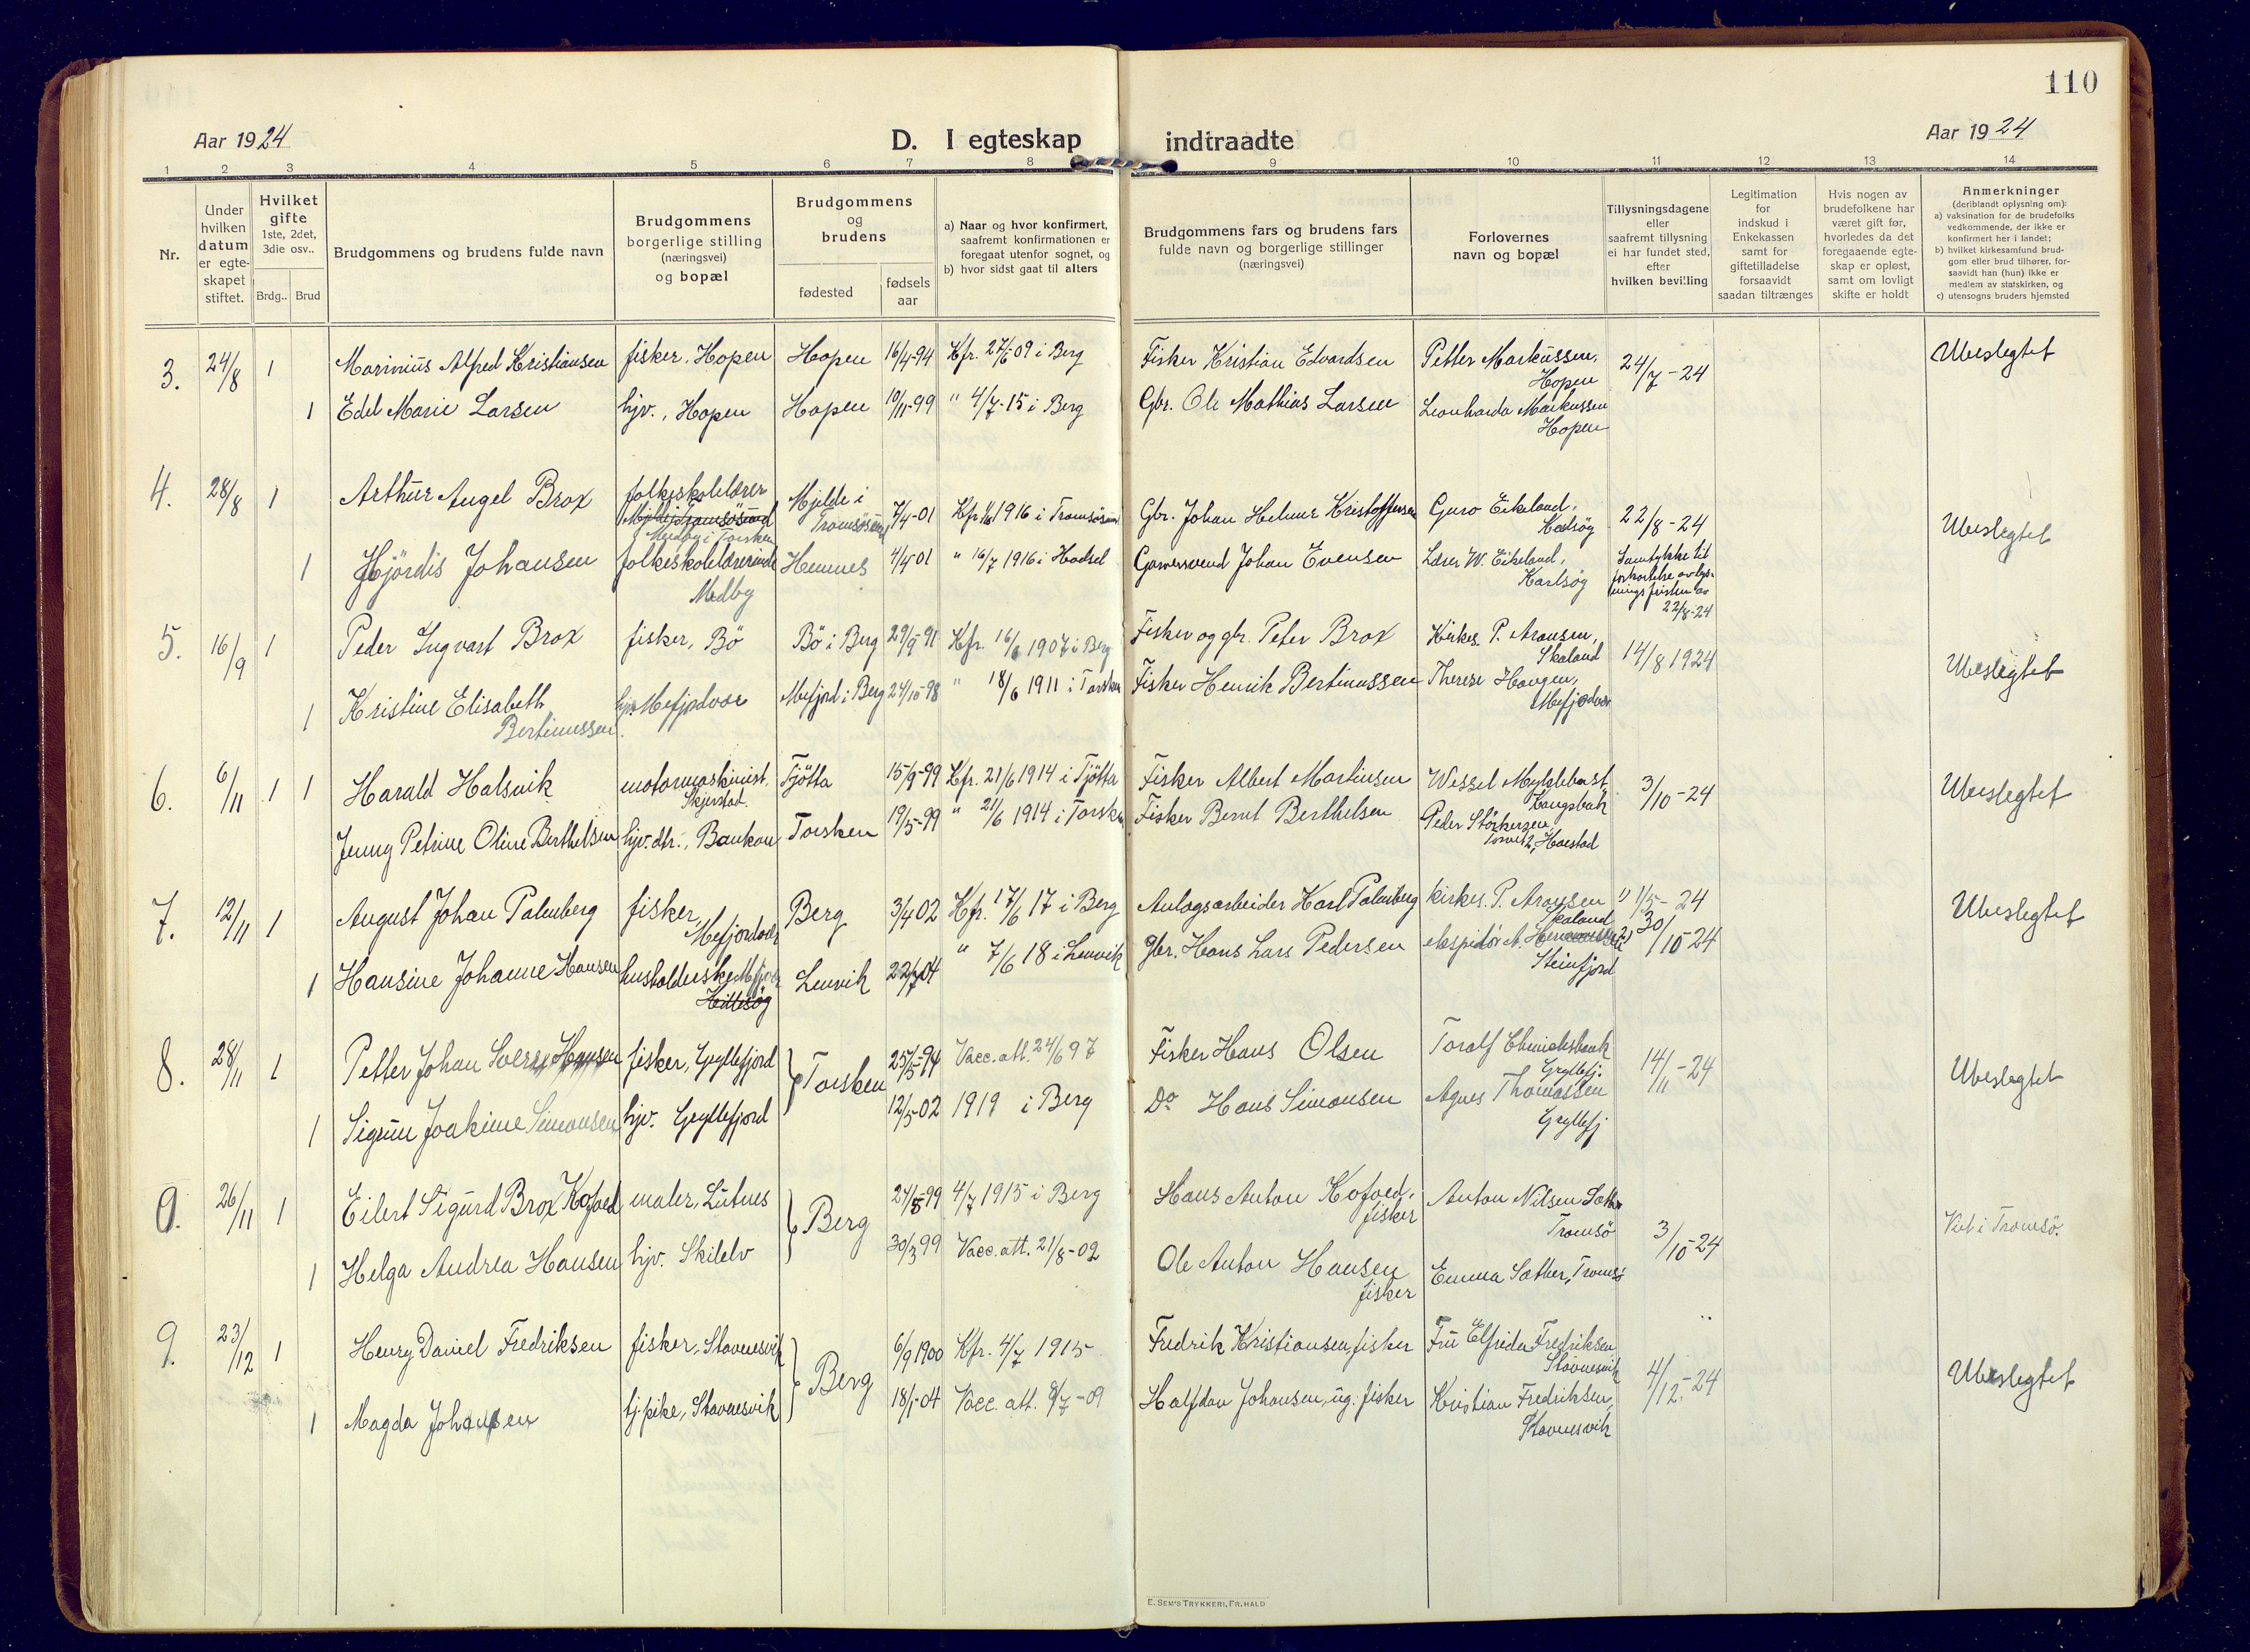 110
Aar 1924
D. I egteskap indtraadte
Aar 1924
1 2 3 4 5 6 7 8 9 10 11 12 13 14
Nr.
Under hvilken datum er egteskapet stiftet.
Hvilket gifte 1ste, 2det, 3die osv..
Brdg.. Brud
Brudgommens og brudens fulde navn
Brudgommens borgerlige stilling (næringsvei) og bopæl
Brudgommens og brudens
fødested
fødsels aar
a) Naar og hvor konfirmert, saafremt konfirmationen er foregaat utenfor sognet, og
b) hvor sidst gaat til alters
Brudgommens fars og brudens fars fulde navn og borgerlige stillinger (næringsvei)
Forlovernes navn og bopæl
Tillysningsdagene eller saafremt tillysning ei har fundet sted, efter hvilken bevilling
Legitimation for indskud i Enkekassen samt for giftetilladelse forsaavidt saadan tiltrænges
Hvis nogen av brudefolkene har været gift før, hvorledes da det foregaaende egteskap er opløst, samt om lovligt skifte er holdt
Anmerkninger (deriblandt oplysning om):
a) vaksination for de brudefolks vedkommende, der ikke er konfirmert her i landet;
b) hvilket kirkesamfund brudgom eller brud tilhører, forsaavidt han (hun) ikke er medlem av statskirken, og
c) utensogns bruders hjemsted
3. 24/8 1 Marinius Alfred Kristiansen fisker, Hopen Hopen 16/4-94 Kfr. 27/6 09 i Berg Fisker Kristian Edvardsen Petter Markussen, Hopen 24/7-24 Ubeslegtet
1 Edel Marie Larsen hjv., Hopen Hopen 10/11-99 " 4/7-15 i Berg Gbr. Ole Mathias Larsen Leonharda Markussen Hopen
4. 28/8 1 Arthur Angel Brox folkeskolelærer Medby i Torsken Mjelde i Tromsøsund 7/4-01 Kfr. 1916 i Tromsøsund Gbr. Johan Helmer Kristoffersen Guro Eikeland, Karlsøy 22/8-24 Ubeslegtet
1 Hjördis Johansen folkeskolelærerinde Medby Hemnes 4/4 01 " 16/7 1916 i Hadsel Johan Evensen Lærer W. Eikeland, Karlsøy Samtykke til forkortelse av lysningsfristen av 22/8-24
5. 16/9 1 Peder Ingvart Brox fisker, Bö Bö i Berg 29/9 91 Kfr. 16/6 1907 i Berg Fisker og gbr. Peter Brox Kirkes. P. Aronsen, Skaland 14/8 1924 Ubeslegtet
1 Kristine Elisabeth Bertinussen hjv. Mefjordvær Mefjord i Berg 24/10-98 " 18/6 1911 i Torsken Fisker Henrik Bertinussen Therese Haugen, Mefjordvær
6. 6/11 1 1 Harald Halsvik motormaskinist. Skjerstad. Tjötta 15/9-99 Kfr. 21/6 1914 i Tjötta Fisker Albert Martinsen Wessel 3/10-24 Ubeslegtet
Jenny Petrine Oline Berthelsen hjv. dtr., Baukon Torsken 19/5-99 " 21/6 1914 i Torsken Fisker Bernt Berthelsen Peder Harstad
7. 12/11 1 August Johan Palmberg fisker, Mefjordvær Berg 3/4 02 Kfr. 17/6 17 i Berg Anlagsarbeider Karl Palmberg kirkes. P. Aronsen Skaland 1) 1/5-24 Ubeslegtet
1 Hansine Johanne Hansen husholderske Mefjordvær Lenvik 22/7 04 " 7/6 18 i Lenvik gbr. Hans Lars Pedersen ekspeditör A. Steinfjord 2) 30/10-24
8. 28/11 1 Petter Johan Sverre Hansen fisker, Gryllefjord Torsken 25/5-94 Vacc. att. 24/6 97 Fisker Hans Olsen Toralf Gryllefj. 14/11-24 Ubeslegtet
1 Sigrun Joakime Simonsen hjv. Gryllefjord 12/5-02 1919 i Berg Do Hans Simonsen Agnes Thomassen Gryllefj
9. 26/11 1 Eilert Sigurd Brox Kofoed maler, Lutnes Berg 24/8-99 4/7 1915 i Berg Hans Anton Kofoed, fisker Anton Nilsen Sæther Tromsö 3/10-24 Viet i Tromsö.
1 Helga Andrea Hansen hjv. Skilelv 30/3 99 Vacc. att. 21/8-02 Ole Anton Hansen fisker Emma Sæther, Tromsö
9. 23/12 1 Henry Daniel Fredriksen fisker, Stavnesvik Berg 6/9 1900 Kfr. 4/7 1915 Fredrik Kristiansen, fisker Fru Elfrida Fredriksen Stavnesvik 4/12-24 Ubeslegtet
1 Magda Johansen tj. pike, Stavnesvik 18/1-04 Vacc. att. 8/7-09 Halfdan Johansen, ug. fisker Kristian Fredriksen, Stavnesvik
E. SEM'S TRYKKERI, FR.HALD